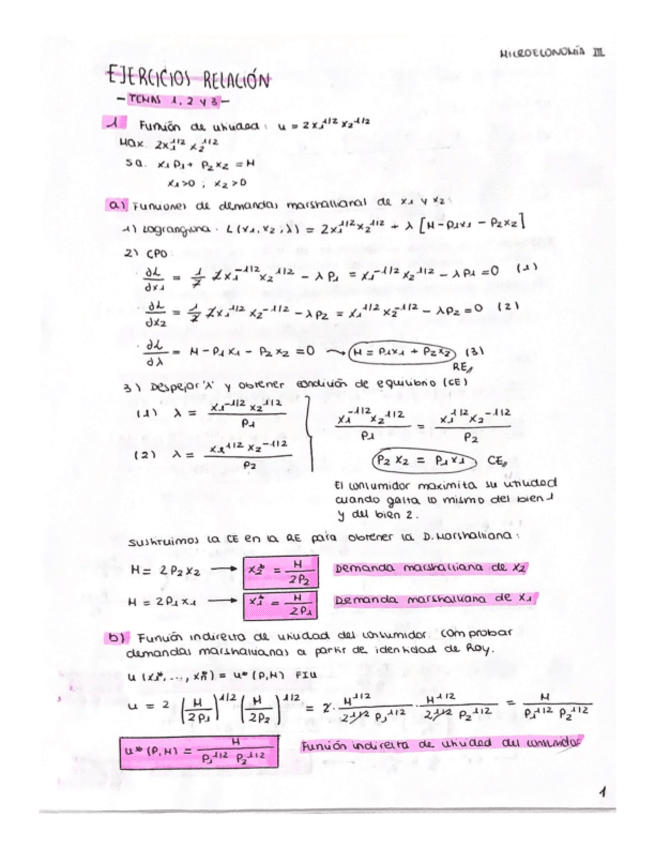 MICROECONOMÍA III
EJERCICIOS RELACIÓN
- TEMAS 1, 2 Y 3 -
1 Función de utilidad: u = 2x₁^1/2 x₂^1/2
Max. 2x₁^1/2 x₂^1/2
s.a. x₁p₁ + p₂x₂ = M
x₁>0 ; x₂>0
a) Funciones de demandas marshallianas de x₁ y x₂:
1) Lagrangiana. L(x₁, x₂, λ) = 2x₁^1/2 x₂^1/2 + λ [M - p₁x₁ - p₂x₂]
2) CPO:
∂L/∂x₁ = 1/2 2x₁^-1/2 x₂^1/2 - λp₁ = x₁^-1/2 x₂^1/2 - λp₁ = 0 (1)
∂L/∂x₂ = 1/2 2x₁^1/2 x₂^-1/2 - λp₂ = x₁^1/2 x₂^-1/2 - λp₂ = 0 (2)
∂L/∂λ = M - p₁x₁ - p₂x₂ = 0 → M = p₁x₁ + p₂x₂ (3)
RE
3) Despejar 'λ' y obtener condición de equilibrio (CE)
(1) λ = x₁^-1/2 x₂^1/2 / p₁
(2) λ = x₁^1/2 x₂^-1/2 / p₂
x₁^-1/2 x₂^1/2 / p₁ = x₁^1/2 x₂^-1/2 / p₂
p₂x₂ = p₁x₁ CE
El consumidor maximiza su utilidad
cuando gasta lo mismo del bien 1
y del bien 2.
Sustituimos la CE en la RE para obtener la D. Marshalliana:
M = 2p₂x₂ → x₂* = M/2p₂ Demanda marshalliana de x₂
M = 2p₁x₁ → x₁* = M/2p₁ Demanda marshalliana de x₁
b) Función indirecta de utilidad del consumidor. Comprobar
demandas marshallianas a partir de identidad de Roy.
u (x₁*, ..., xₙ*) = u* (p, M) FIU
u = 2 (M/2p₁)^1/2 (M/2p₂)^1/2 = 2 · M^1/2 / 2^1/2 p₁^1/2 · M^1/2 / 2^1/2 p₂^1/2 = M / p₁^1/2 p₂^1/2
u* (p, M) = M / p₁^1/2 p₂^1/2 Función indirecta de utilidad del consumidor
1